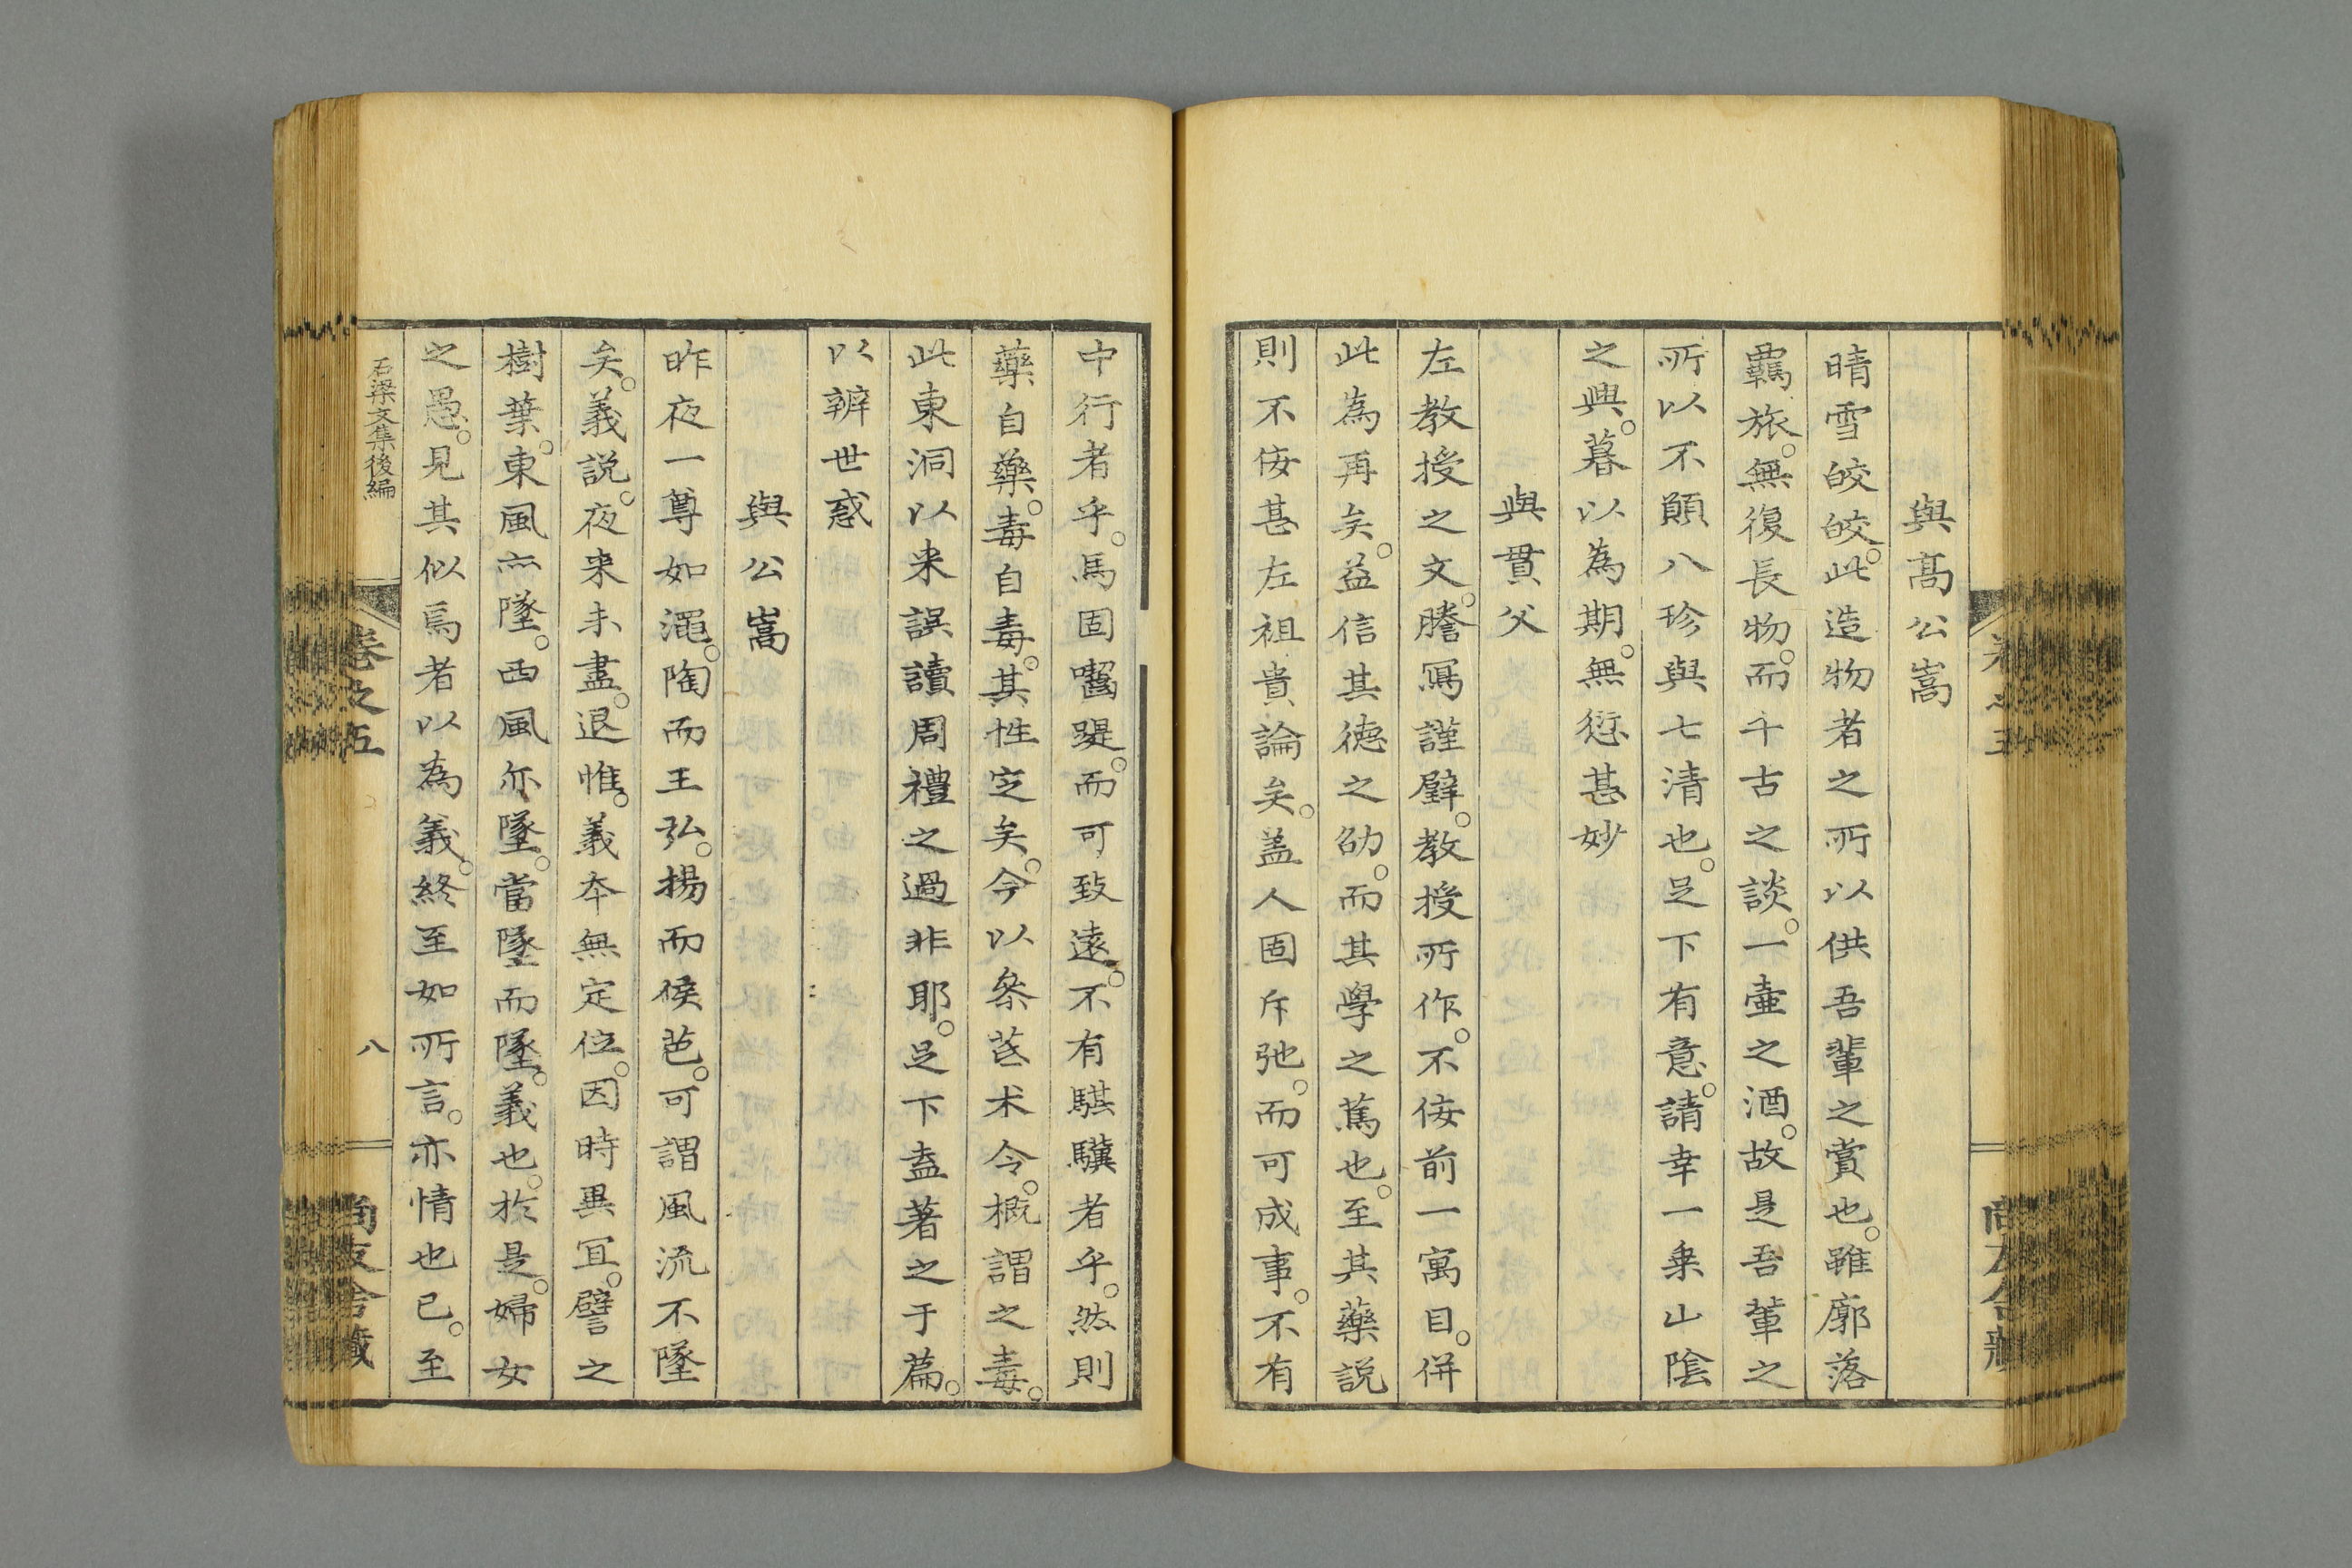 與髙公嵩
晴雪皎皎。此造物者之所以供吾輩之賞也。雖廓落
羈旅。無復長物。而千古之談。一壷之酒。故是吾輩之
所以不願八珍與七清也。足下有意。請幸一乗山陰
之興。暮以為期。無愆甚妙
與貫父
左教授之文。謄寫謹璧。教授所作。不侫前一寓目。併
此為再矣。益信其德之劭。而其學之篤也。至其藥説
則不侫甚左祖貴論矣。盖人固斥弛。而可成事。不有
中行者乎。馬固囓踶。而可致遠。不有騏驥者乎。然則
藥自藥。毒自毒。其性定矣。今以參茋术令。概謂之毒。
此東洞以来誤讀周禮之過非耶。足下盍著之于篇。
以辨世惑
與公嵩
昨夜一尊如澠。陶而王弘。揚而侯芭。可謂風流不墜
矣。義説。夜来未盡。退惟。義夲無定位。因時異冝。譬之
樹葉。東風亦墜。西風亦墜。當墜而墜。義也。於是。婦女
之愚。見其似焉者以為義。終至如所言。亦情也已。至
石梁文集後編
卷之五
八
尚友舎藏